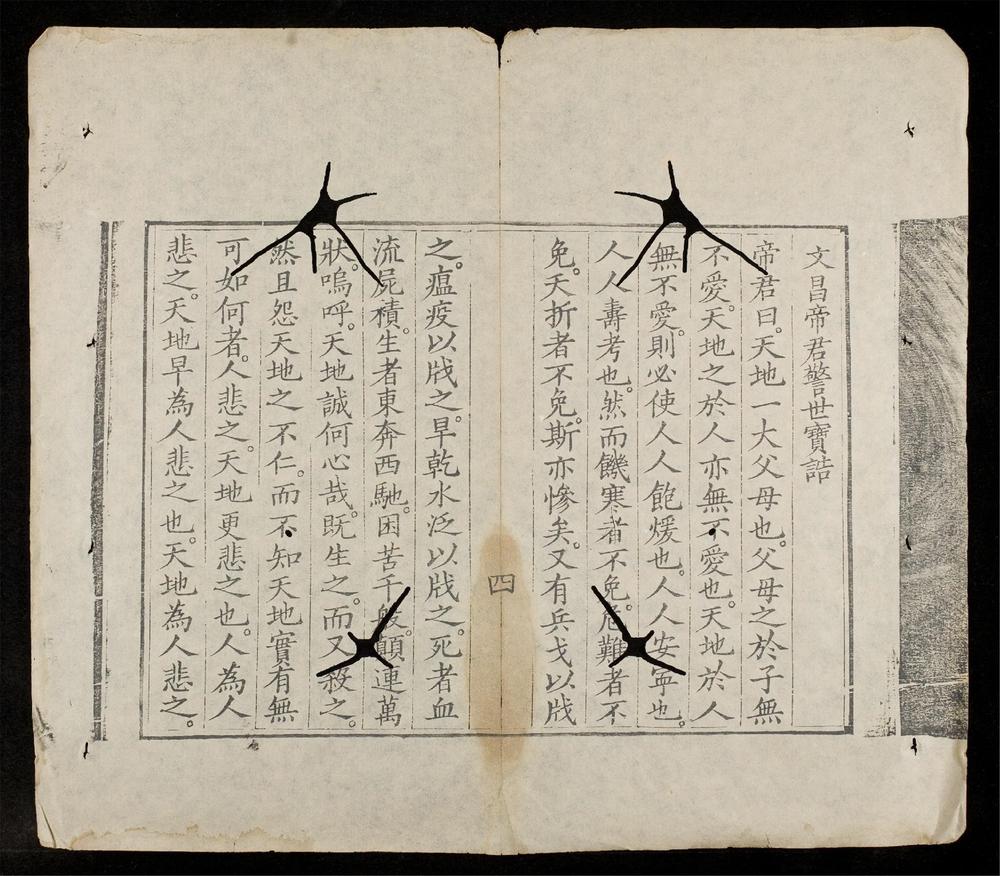 文昌帝君警世寶誥
帝君曰。天地一大父母也。父母之於子無
不愛。天地之於人亦無不愛也。天地於人
無不愛。則必使人人飽煖也。人人安寧也。
人人壽考也。然而饑寒者不免。危難者不
免。夭折者不免。斯亦慘矣。又有兵戈以戕
四
之。瘟疫以戕之。旱乾水泛以戕之。死者血
流屍積。生者東奔西馳。困苦千般。顛連萬
狀。嗚呼。天地誠何心哉。既生之。而又殺之。
然且怨天地之不仁。而不知天地實有無
可如何者。人悲之。天地更悲之也。人為人
悲之。天地早為人悲之也。天地為人悲之。